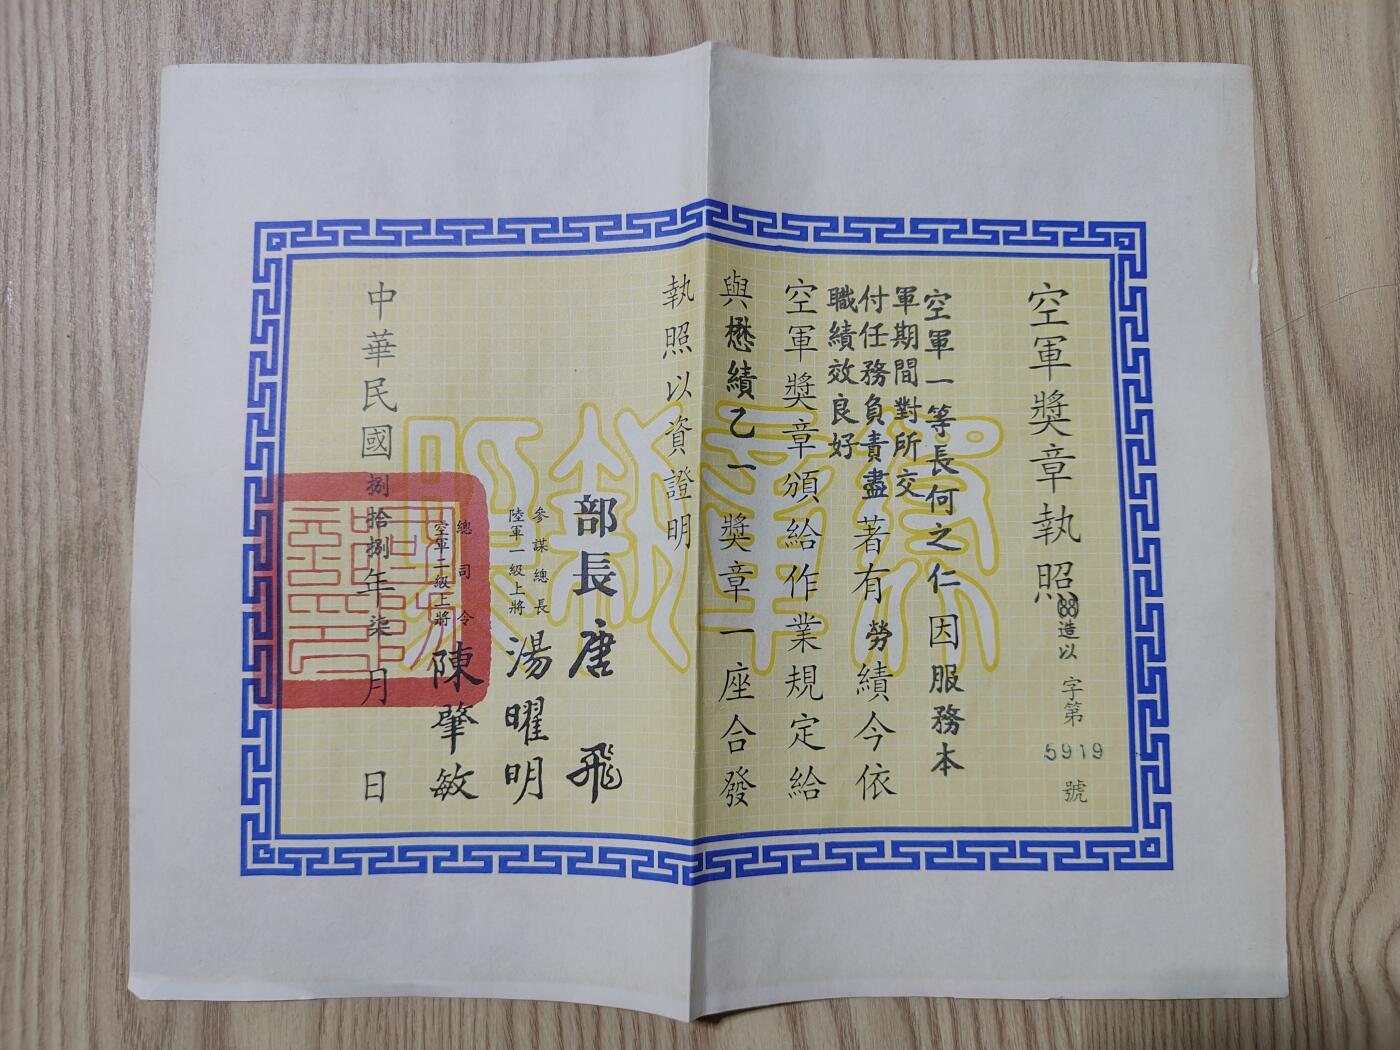 空軍獎章執照
(88)造以 字第 5919 號
空軍一等長何之仁因服務本
軍期間對所交
付任務負責盡
職績效良好
著有勞績今依
空軍獎章頒給作業規定給
與懋績乙一獎章一座合發
執照以資證明
部長 唐飛
參謀總長
陸軍一級上將
湯曜明
總司令
空軍二級上將
陳肇敏
中華民國捌拾捌年柒月 日